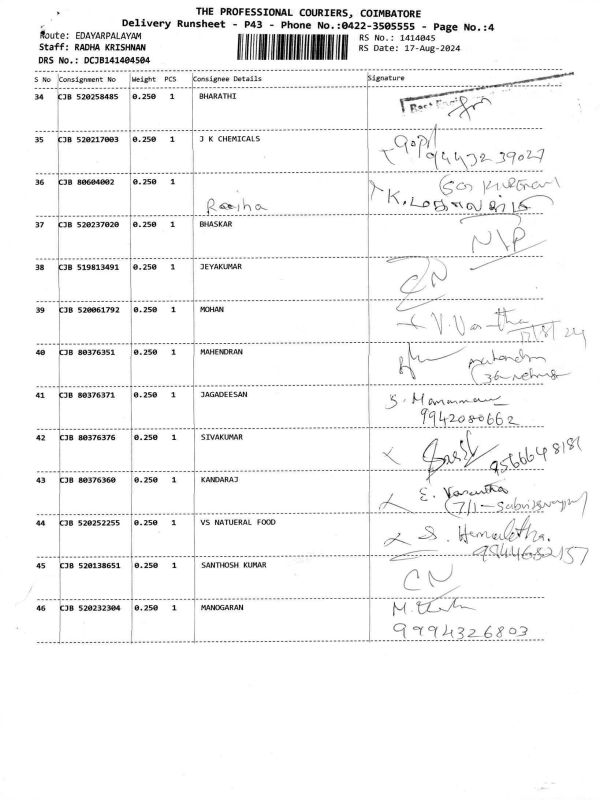 THE PROFESSIONAL COURIERS, COIMBATORE
Delivery Runsheet - P43 - Phone No.:0422-3505555 - Page No.:4
Route: EDAYARPALAYAM
RS No.: 1414045
Staff: RADHA KRISHNAN
RS Date: 17-Aug-2024
DRS No.: DCJB141404504
S No Consignment No Weight PCS Consignee Details Signature
34 CJB 520258485 0.250 1 BHARATHI
35 CJB 520217003 0.250 1 J K CHEMICALS
94432 39027
36 CJB 80604002 0.250 1
37 CJB 520237020 0.250 1 BHASKAR
N\P
38 CJB 519813491 0.250 1 JEYAKUMAR
CN
39 CJB 520061792 0.250 1 MOHAN
17/8/24
40 CJB 80376351 0.250 1 MAHENDRAN
41 CJB 80376371 0.250 1 JAGADEESAN
9942080662
42 CJB 80376376 0.250 1 SIVAKUMAR
9566648181
43 CJB 80376360 0.250 1 KANDARAJ
E. Vasantha
44 CJB 520252255 0.250 1 VS NATUERAL FOOD
S. Hemalatha.
9944682157
45 CJB 520138651 0.250 1 SANTHOSH KUMAR
CN
46 CJB 520232304 0.250 1 MANOGARAN
9994326803